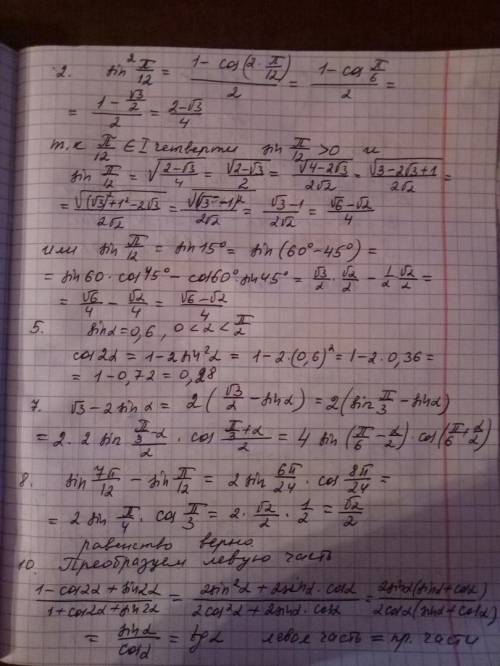 2. sin² π/12 = (1 - cos(2·π/12))/2 = (1 - cos π/6)/2 =
= (1 - √3/2)/2 = (2-√3)/4
т.к π/12 ∈ I четверти sin π/12 > 0 и
sin π/12 = √((2-√3)/4) = √(2-√3)/2 = √(4-2√3)/(2√2) = √(3-2√3+1)/(2√2) =
= √((√3)²+1²-2√3)/(2√2) = √((√3-1)²)/(2√2) = (√3-1)/(2√2) = (√6-√2)/4
или sin π/12 = sin 15° = sin (60°-45°) =
= sin 60 · cos 45° - cos 60° · sin 45° = √3/2 · √2/2 - 1/2 √2/2 =
= √6/4 - √2/4 = (√6-√2)/4
5. sin α = 0,6 , 0 < α < π/2
cos 2α = 1-2 sin² α = 1-2·(0,6)² = 1-2·0,36 =
= 1-0,72 = 0,28
7. √3 - 2 sin α = 2 (√3/2 - sin α) = 2 (sin π/3 - sin α)
= 2·2 sin (π/3-α)/2 · cos (π/3+α)/2 = 4 sin (π/6 - α/2) · cos (π/6 + α/2)
8. sin 7π/12 - sin π/12 = 2 sin 6π/24 · cos 8π/24 =
= 2 sin π/4 · cos π/3 = 2 · √2/2 · 1/2 = √2/2
равенство верно
10. Преобразуем левую часть
(1-cos 2α + sin 2α)/(1+cos 2α + sin 2α) = (2 sin² α + 2 sin α · cos α)/(2 cos² α + 2 sin α · cos α) = (2 sin α (sin α + cos α))/(2 cos α (sin α + cos α))
= sin α/cos α = tg α левая часть = пр. части